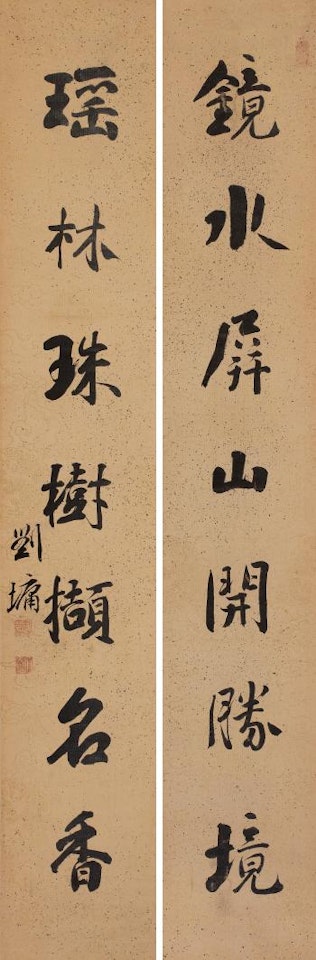 鏡水屏山開勝境
瑶林珠樹擷名香
劉墉